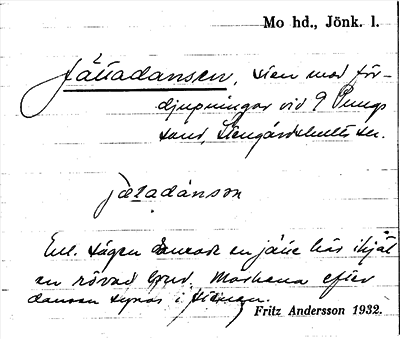 Mo hd., Jönk. l.
Jättadansen, sten med för-
djupningar vid 9 Pungs
sand, Stengårdshults sn.
jätadánsən
Enl. sägen dansade en jätte här ihjäl
en rövad brud. Märkena efter
dansen synas i stenen.
Fritz Andersson 1932.